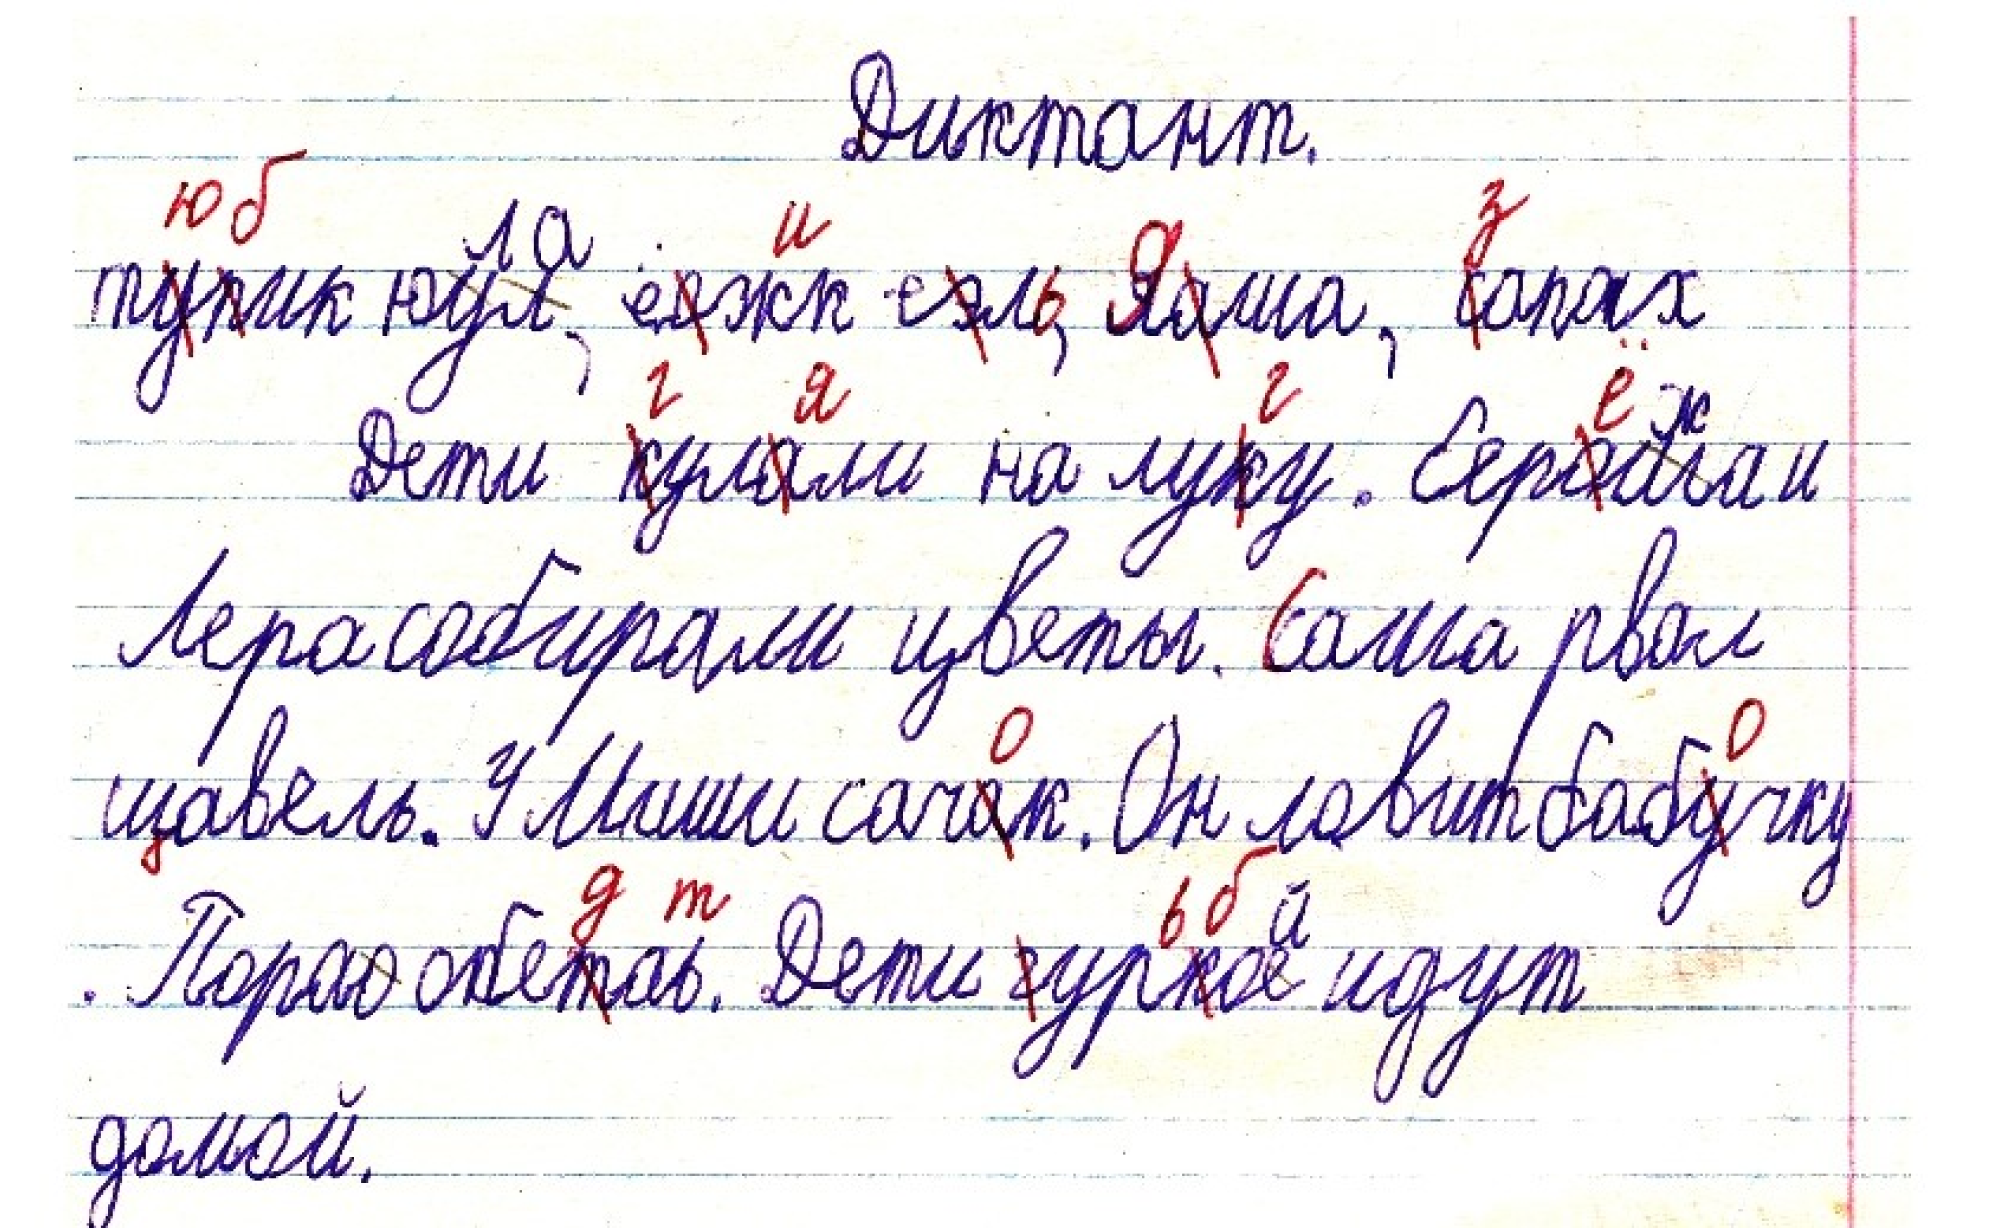 Диктант.
юб ла и з
тупик юул, ёэжк еэль, Яаша, сапах
г я г ё ж
Дети кулали на луку. Серайга и
Лера собирали цветы. Саша рвал
о о
щавель. У Миши сачак. Он ловит бабучку
д т ь б й
. Порао обетаь. Дети гуркое идут
домой.